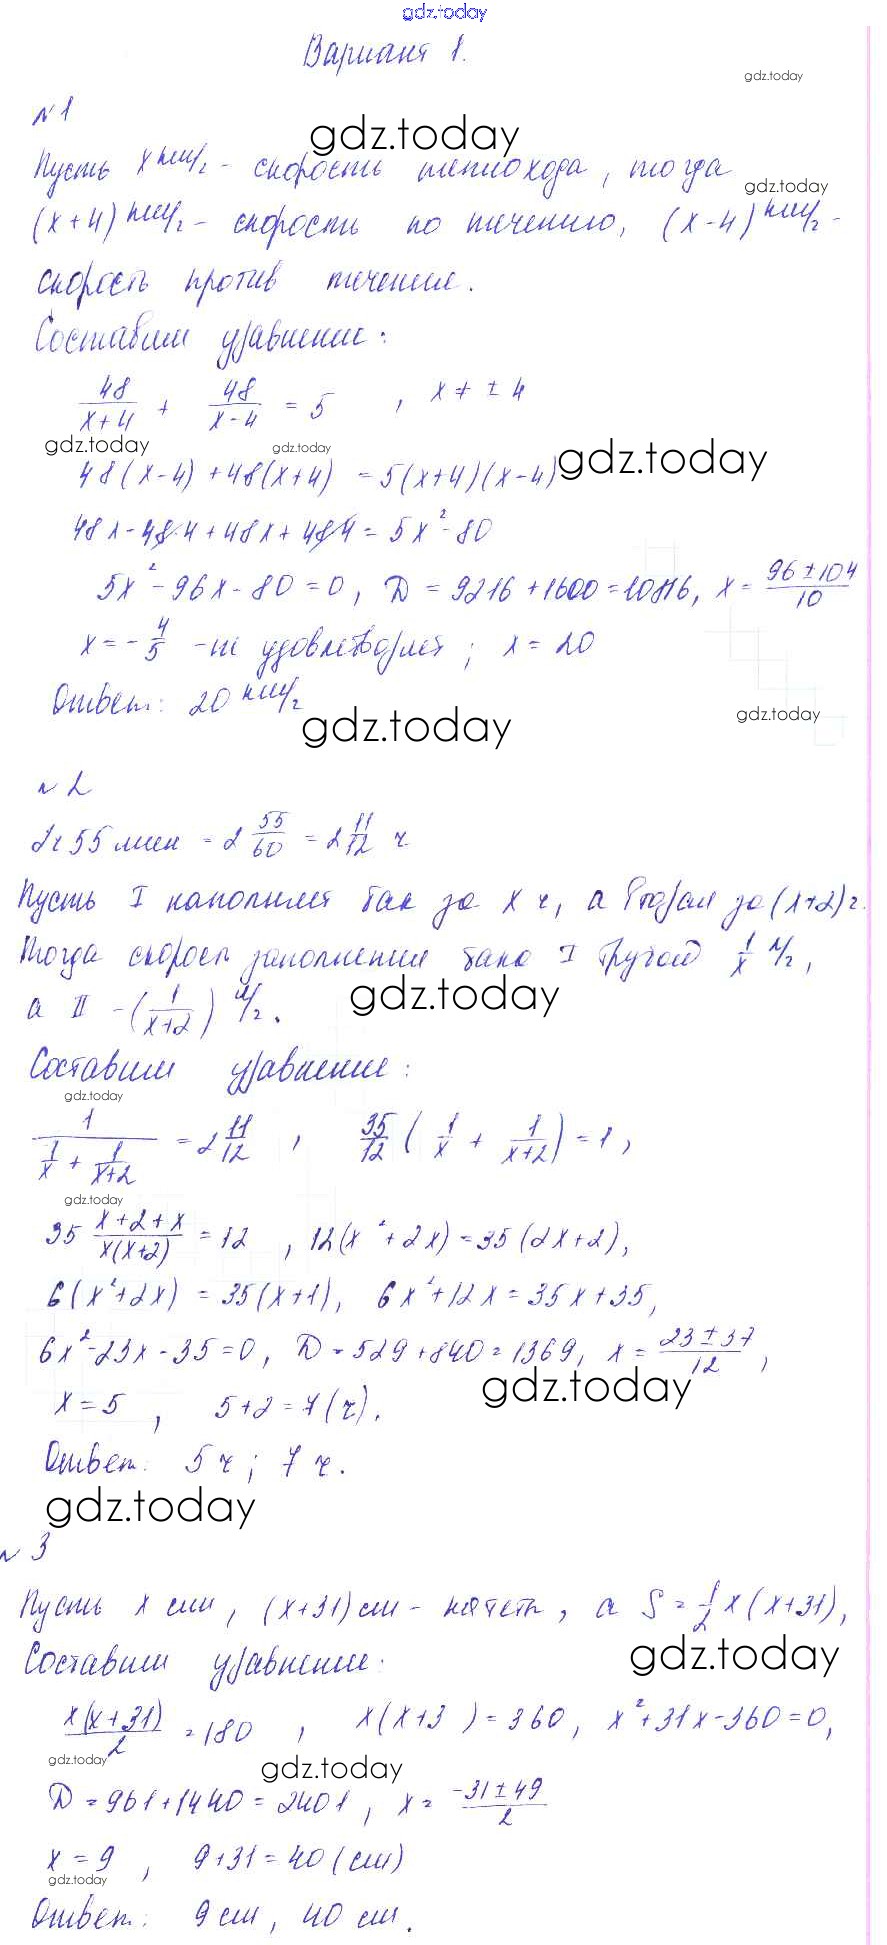 gdz.today
Вариант 1.
gdz.today
№1
gdz.today
Пусть x км/ч - скорость теплохода, тогда
gdz.today
(x+4) км/ч - скорость по течению, (x-4) км/ч -
скорость против течения.
Составим уравнение:
48/(x+4) + 48/(x-4) = 5 , x ≠ ± 4
gdz.today gdz.today gdz.today
48(x-4) + 48(x+4) = 5(x+4)(x-4)
48x - 48·4 + 48x + 48·4 = 5x² - 80
5x² - 96x - 80 = 0, D = 9216 + 1600 = 10816, x = (96 ± 104)/10
x = - 4/5 - не удовлетворяет; x = 20
Ответ: 20 км/ч
gdz.today gdz.today
№2
2ч 55 мин = 2 55/60 = 2 11/12 ч
Пусть I наполняет бак за x ч, а вторая за (x+2) ч.
Тогда скорость заполнения бака I трубой 1/x л/ч,
а II - (1/(x+2)) л/ч.
gdz.today
Составим уравнение:
gdz.today
1/(1/x + 1/(x+2)) = 2 11/12 , 35/12 (1/x + 1/(x+2)) = 1,
gdz.today
35 (x+2+x)/(x(x+2)) = 12 , 12(x² + 2x) = 35(2x+2),
6(x²+2x) = 35(x+1), 6x² + 12x = 35x + 35,
6x² - 23x - 35 = 0, D = 529 + 840 = 1369, x = (23 ± 37)/12,
gdz.today
x = 5 , 5+2 = 7 (ч).
Ответ: 5 ч; 7 ч.
gdz.today
№3
Пусть x см, (x+31) см - катеты, а S = 1/2 x(x+31),
gdz.today
Составим уравнение:
x(x+31)/2 = 180 , x(x+3 ) = 360, x² + 31x - 360 = 0,
gdz.today gdz.today
D = 961 + 1440 = 2401, x = (-31 ± 49)/2
x = 9 , 9+31 = 40 (см)
gdz.today
Ответ: 9 см, 40 см.